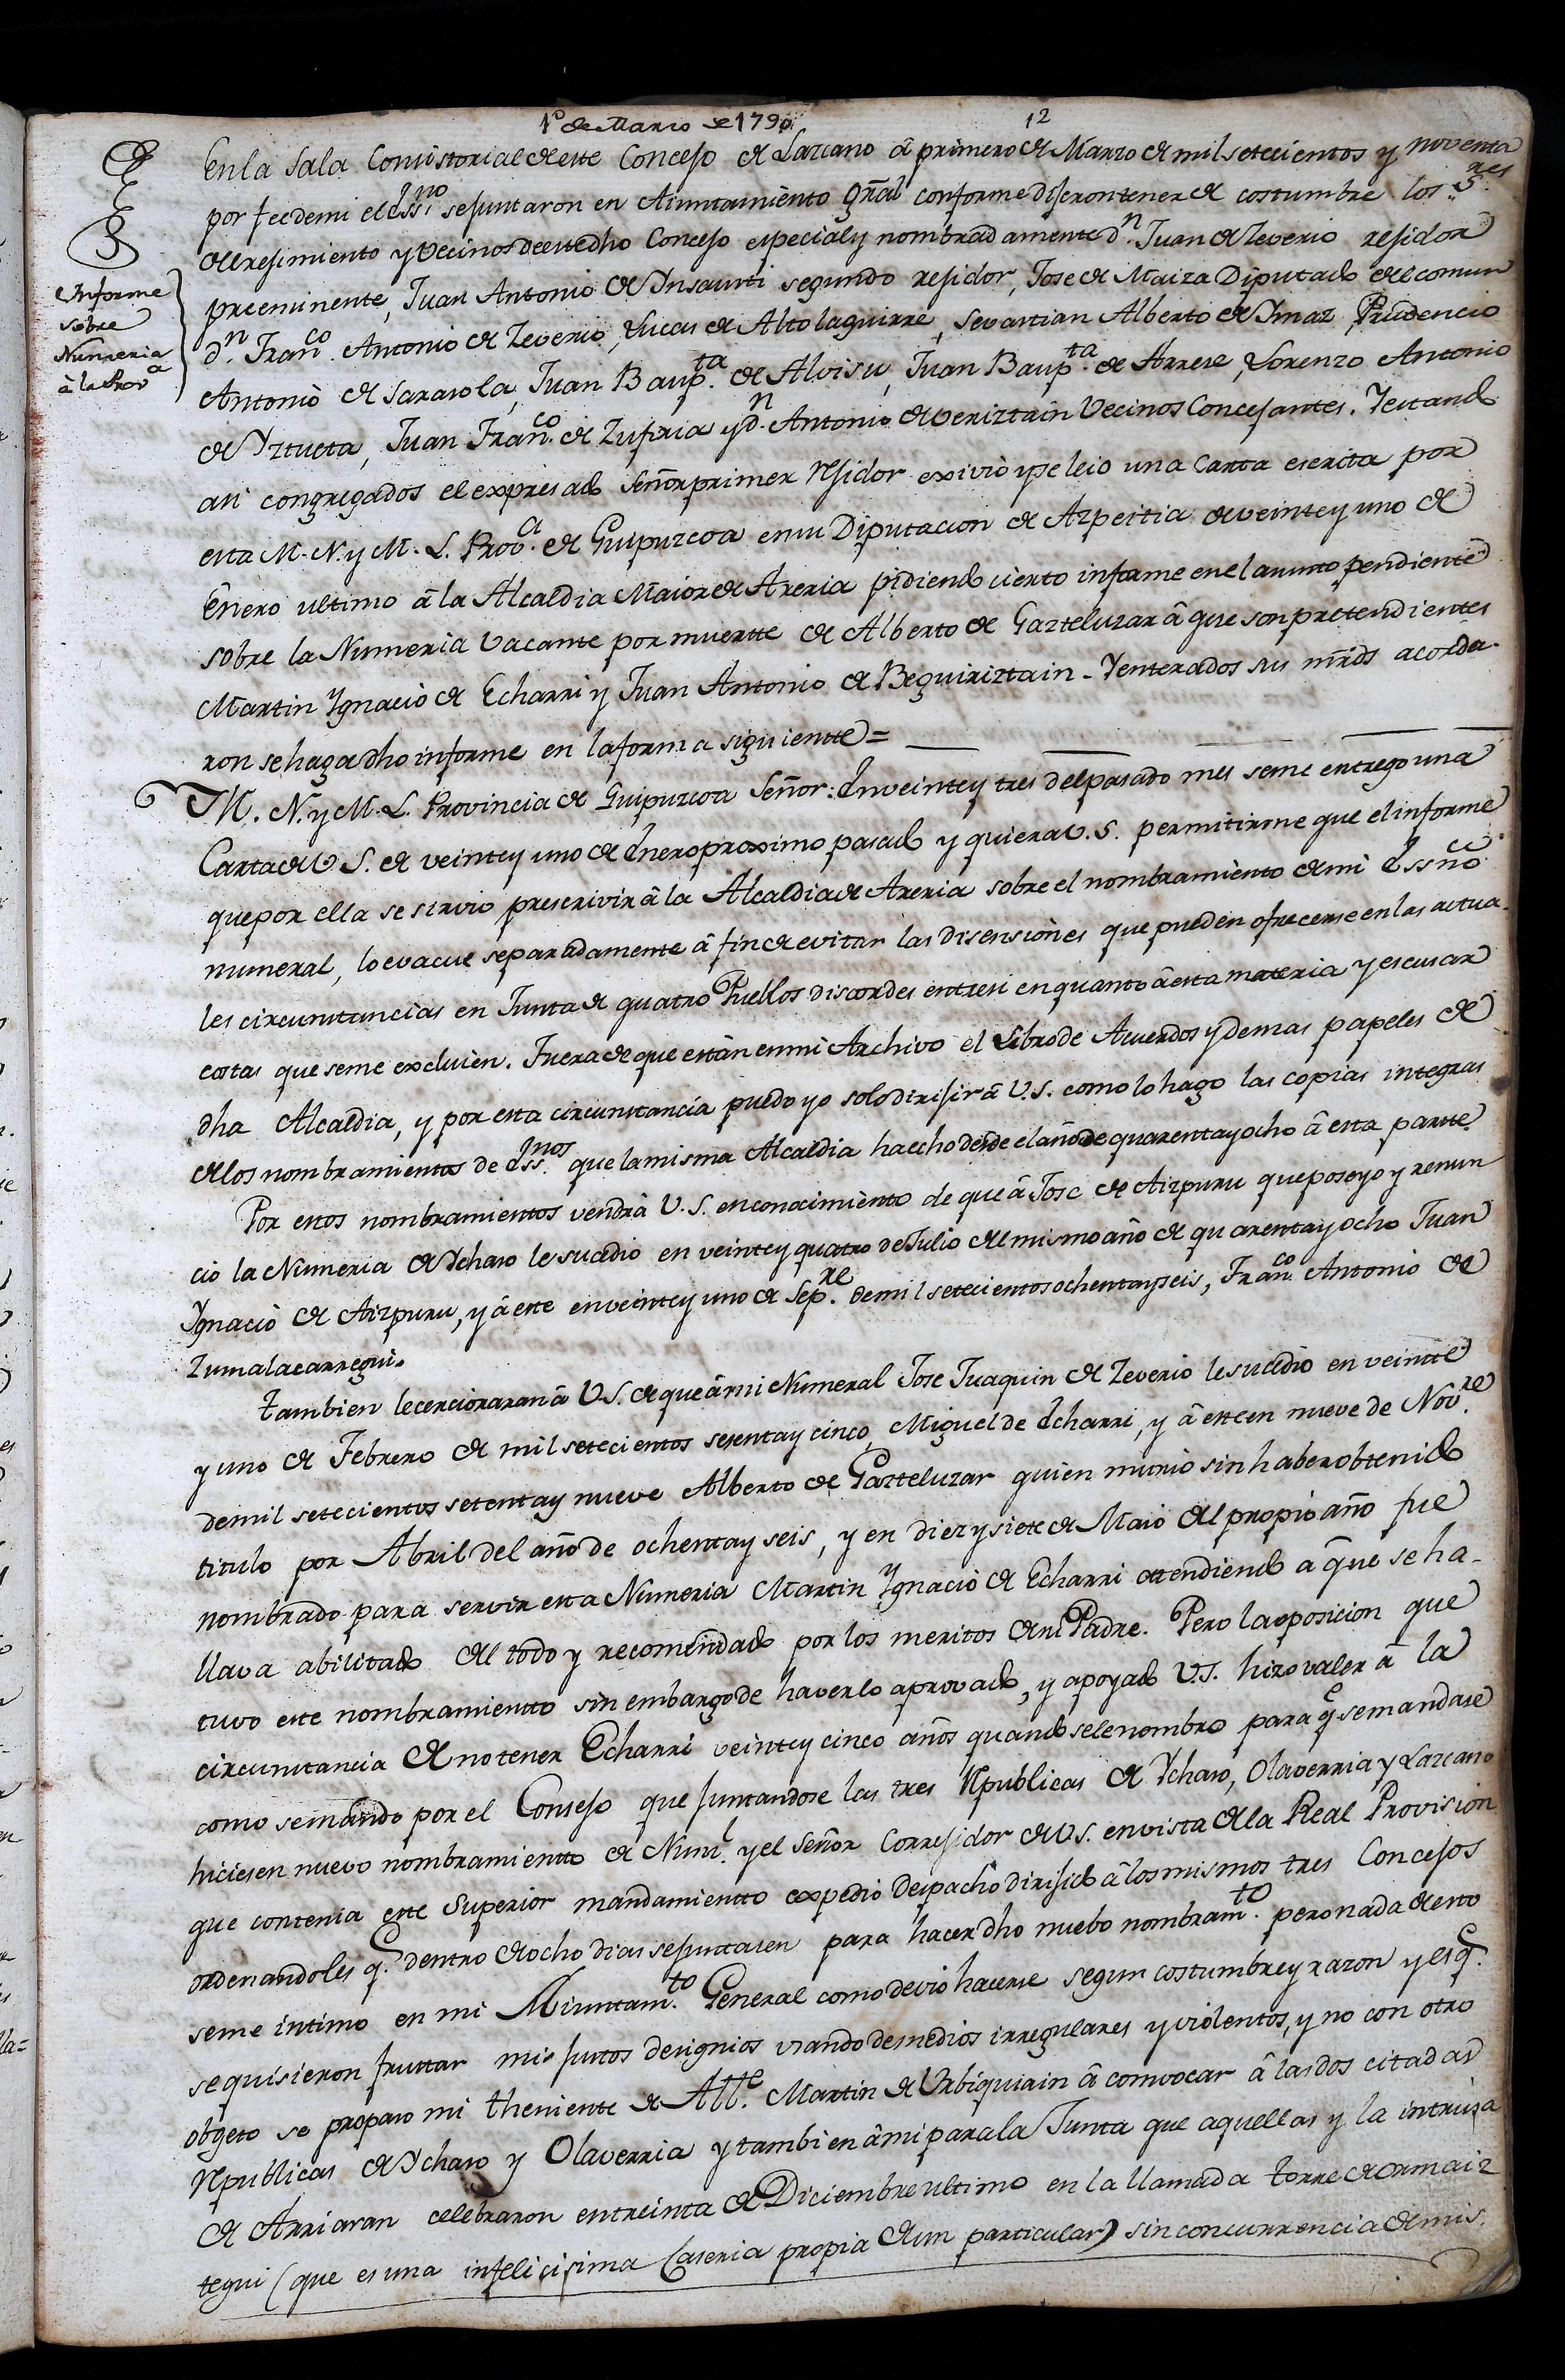 1º de Marzo de 1790
12
En la Sala Consistorial de este Concejo de Lazcano â primero de Marzo de mil setecientos y noventa
por fee de mi el Essno se juntaron en Aiuntamiento gral conforme dijeron tener de costumbre los Sres
del rejimiento y Vecinos de este dho Concejo especial y nombradamente dn. Juan de Zeverio rejidor
preeminente, Juan Antonio de Ynsausti segundo rejidor, Jose de Maiza Diputado del comun
dn. Franco. Antonio de Zeverio, Lucas de Altolaguirre, Sevastian Alberto de Ymaz, Prudencio
Antonio de Sarasola, Juan Baupta. de Aloisu, Juan Baupta. de Arrese, Lorenzo Antonio
de Yztueta, Juan Franco. de Zufiria y dn. Antonio de veriztain Vecinos Concejantes. Y estando
asi congregados el expresado Señor primer rejidor exivió y se leio una Carta escrita por
esta M. N. y M. L. Prova. de Guipuzcoa en su Diputacion de Azpeitia de veinte y uno de
Enero ultimo â la Alcaldia Maior de Areria pidiendo cierto informe en el asunto pendiente
sobre la Numeria vacante por muertte de Alberto de Gazteluzar â que son pretendientes
Martin Ygnacio de Echarri y Juan Antonio de Beguiriztain - Y enterados sus mrds acorda-
ron se haga dho informe en la forma siguientte =
Informe
sobre
Numeria
â la Prova
M. N. y M. L. Provincia de Guipuzcoa Señor: En veinte y tres del pasado mes se me entrego una
Carta de V. S. de veinte y uno de Enero proximo pasado y quiera V. S. permitirme que el informe
que por ella se sirvio prescrivir â la Alcaldia de Areria sobre el nombramiento de mi Essno
numeral, lo evacue separadamente â fin de evitar las disensiones que pueden ofrecerse en las actua-
les circunstancias en Junta de quatro Pueblos discordes entre si en quanto â esta materia y escusar
costas que se me excluien. Fuera de que están en mi Archivo el Libro de Acuerdos y demas papeles de
dha Alcaldia, y por esta circunstancia puedo yo solo dirijir â V. S. como lo hago las copias integras
de los nombramientos de Essnos. que la misma Alcaldia ha echo desde el año de quarenta y ocho â esta partte.
Por estos nombramientos vendrà V. S. en conocimiento de que â Jose de Aizpuru que poseyo y renun
ció la Numeria de Ychaso le sucedio en veinte y quatro de Julio del mismo año de quarenta y ocho Juan
Ygnacio de Aizpuru, y â este en veinte y uno de Sepre. de mil setecientos ochenta y seis, Franco. Antonio de
Zumalacarregui.
Tambien le cercioraran â V. S. de que â mi Numeral Jose Juaquin de Zeverio le sucedio en veintte
y uno de Febrero de mil setecientos sesenta y cinco Miguel de Echarri, y â este en nueve de Novre.
de mil setecientos setenta y nueve Alberto de Gazteluzar quien murio sin haber obtenido
titulo por Abril del año de ochenta y seis, y en diez y siete de Maio del propio año fue
nombrado para servir esta Numeria Martin Ygnacio de Echarri attendiendo a que se ha-
llava abilitado del todo y recomendado por los meritos de su Padre. Pero la oposicion que
tuvo este nombramientto sin embargo de haverlo aprovado, y apoyado V. S. hizo valer â la
circunstancia de no tener Echarri veinte y cinco años quando se le nombro para qe se mandase
como se mando por el Consejo que juntandose las tres Republicas de Ychaso, Olaverria y Lazcano
hiciesen nuevo nombramientto de Numl. y el Señor Correjidor de V. S. en vista de la Real Provision
que contenia este Superior mandamientto expedió despacho dirijido â los mismos tres Concejos
ordenandoles qe. dentro de ocho dias se juntasen para hacer dho nuebo nombramto. pero nada de esto
se me intimo en mi Aiuntamto. General como devió hacerse segun costumbre y razon y es qe.
se quisieron frustrar mis justos designios usando de medios irregulares y violentos, y no con otro
objeto se propaso mi theniente de Alle. Martin de Urbiquiain â convocar â las dos citadas
Republicas de Ychaso y Olaverria y tambien â mi para la Junta que aquellas y la intrusa
de Arriaran celebraron en treinta de Diciembre ultimo en la llamada torre de ormaiz
tegui (que es una infelicisima Caseria propia de un particular) sin concurrencia de mis